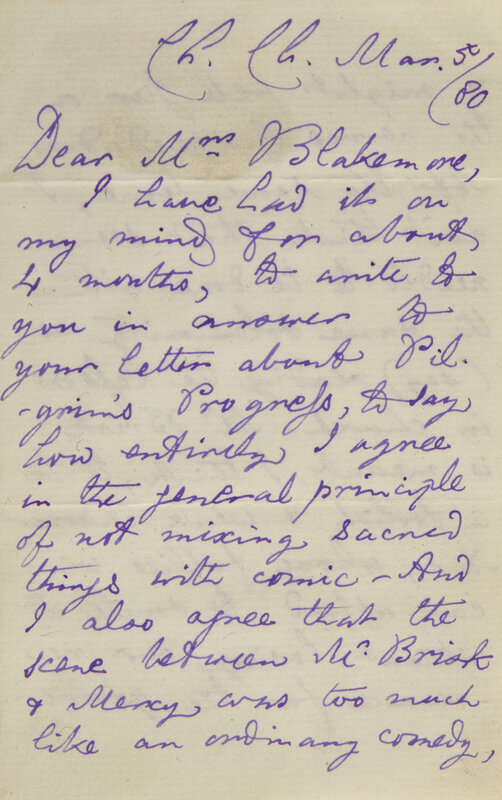 Ch. Ch. Mar. 5t
/80
Dear Mrs Blakemore,
I have had it on
my mind for about
4 months, to write to
you in answer to
your letter about Pil-
-grim's Progress, to say
how entirely I agree
in the general principle
of not mixing sacred
things with comic - And
I also agree that the
scene between Mr. Brisk
& Mercy, was too much
like an ordinary comedy,